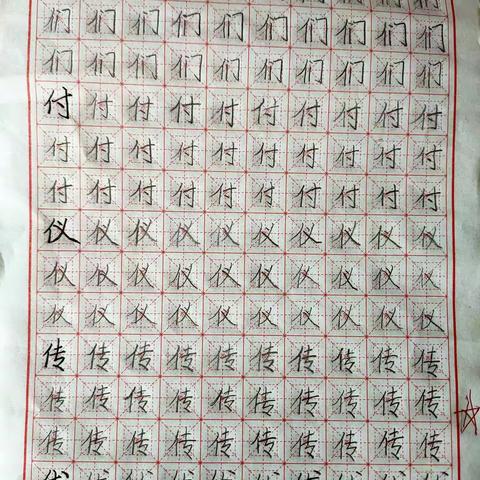 们们们们们们们们们们
们们们们们们们们们们
付付付付付付付付付付
付付付付付付付付付付
付付付付付付付付付付
仪仪仪仪仪仪仪仪仪仪
仪仪仪仪仪仪仪仪仪仪
仪仪仪仪仪仪仪仪仪仪
传传传传传传传传传传
传传传传传传传传传传
传传传传传传传传传传